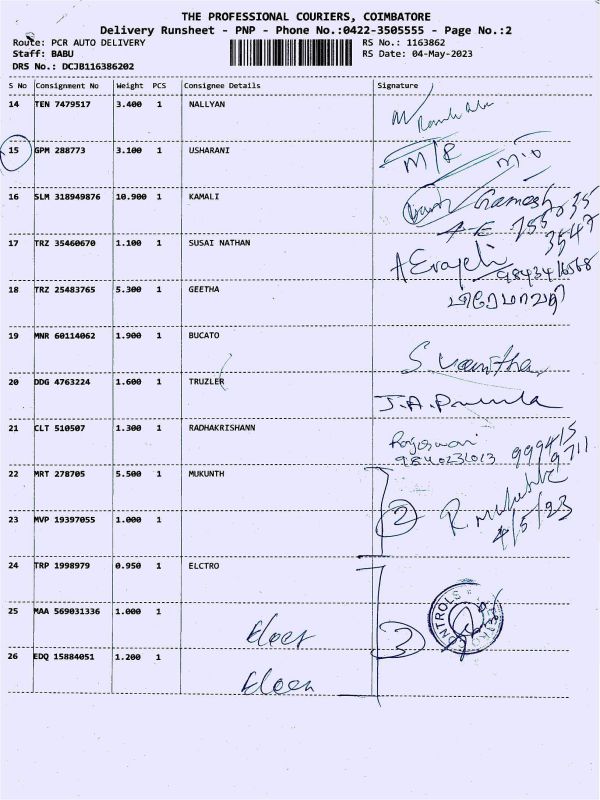 THE PROFESSIONAL COURIERS, COIMBATORE
Delivery Runsheet - PNP - Phone No.:0422-3505555 - Page No.:2
Route: PCR AUTO DELIVERY RS No.: 1163862
Staff: BABU RS Date: 04-May-2023
DRS No.: DCJB116386202
S No Consignment No Weight PCS Consignee Details Signature
14 TEN 7479517 3.400 1 NALLYAN
15 GPM 288773 3.100 1 USHARANI
M/8
16 SLM 318949876 10.900 1 KAMALI
Ramesh
17 TRZ 35460670 1.100 1 SUSAI NATHAN
9843416568
18 TRZ 25483765 5.300 1 GEETHA
19 MNR 60114062 1.900 1 BUCATO
S. Vanitha
20 DDG 4763224 1.600 1 TRUZLER
J.A.
21 CLT 510507 1.300 1 RADHAKRISHANN
Rajeswari 999415
9840231013 9711
22 MRT 278705 5.500 1 MUKUNTH
2 R
4/5/23
23 MVP 19397055 1.000 1
24 TRP 1998979 0.950 1 ELCTRO
25 MAA 569031336 1.000 1
3 CONTROLS
26 EDQ 15884051 1.200 1